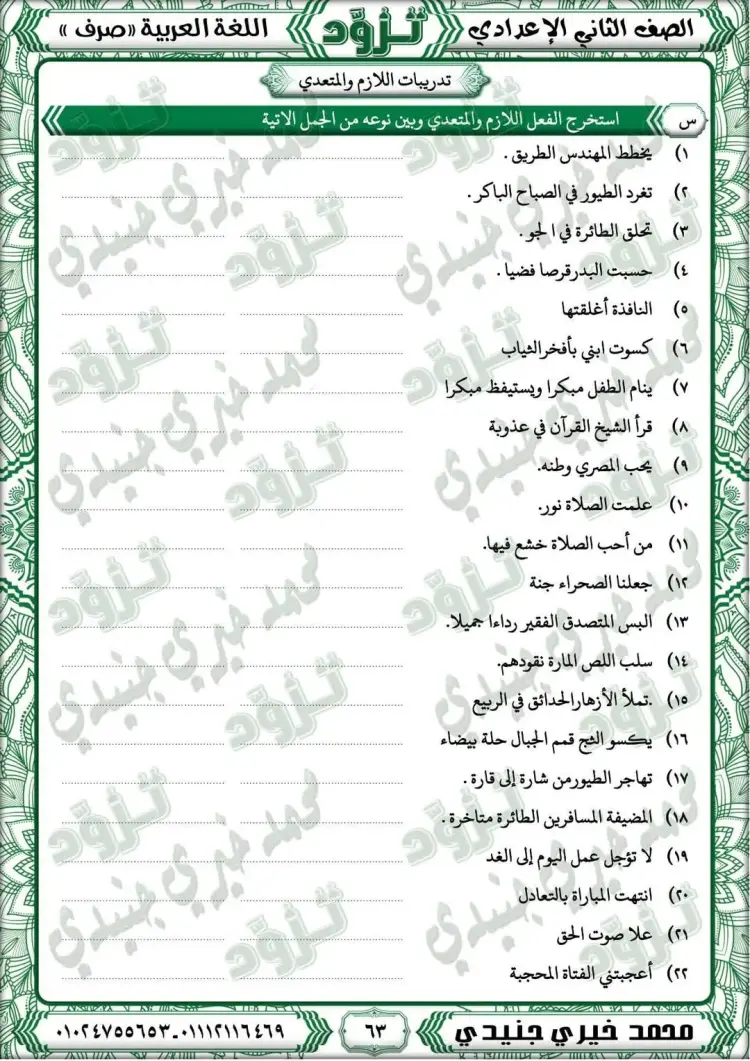 الصف الثاني الإعدادي تزوّد اللغة العربية «صرف »
تدريبات اللازم والمتعدي
س استخرج الفعل اللازم والمتعدي وبين نوعه من الجمل الاتية
١) يخطط المهندس الطريق .
٢) تغرد الطيور في الصباح الباكر .
٣) تحلق الطائرة في ا لجو .
٤) حسبت البدرقرصا فضيا .
٥) النافذة أغلقتها
٦) كسوت ابني بأفخرالثياب
٧) ينام الطفل مبكرا ويستيفظ مبكرا
٨) قرأ الشيخ القرآن في عذوبة
٩) يحب المصري وطنه.
١٠) علمت الصلاة نور.
١١) من أحب الصلاة خشع فيها.
١٢) جعلنا الصحراء جنة
١٣) البس المتصدق الفقير رداءا جميلا.
١٤) سلب اللص المارة نقودهم.
١٥) .تملأ الأزهارالحدائق في الربيع
١٦) يكسو الثج قمم الجبال حلة بيضاء
١٧) تهاجر الطيورمن شارة إلى قارة .
١٨) المضيفة المسافرين الطائرة متاخرة .
١٩) لا تؤجل عمل اليوم إلى الغد
٢٠) انتهت المباراة بالتعادل
٢١) علا صوت الحق
٢٢) أعجبتني الفتاة المحجبة
محمد خيري جنيدي ٦٣ ٠١١١٢١١٦٤٦٩-٠١٠٢٤٧٥٥٦٥٣